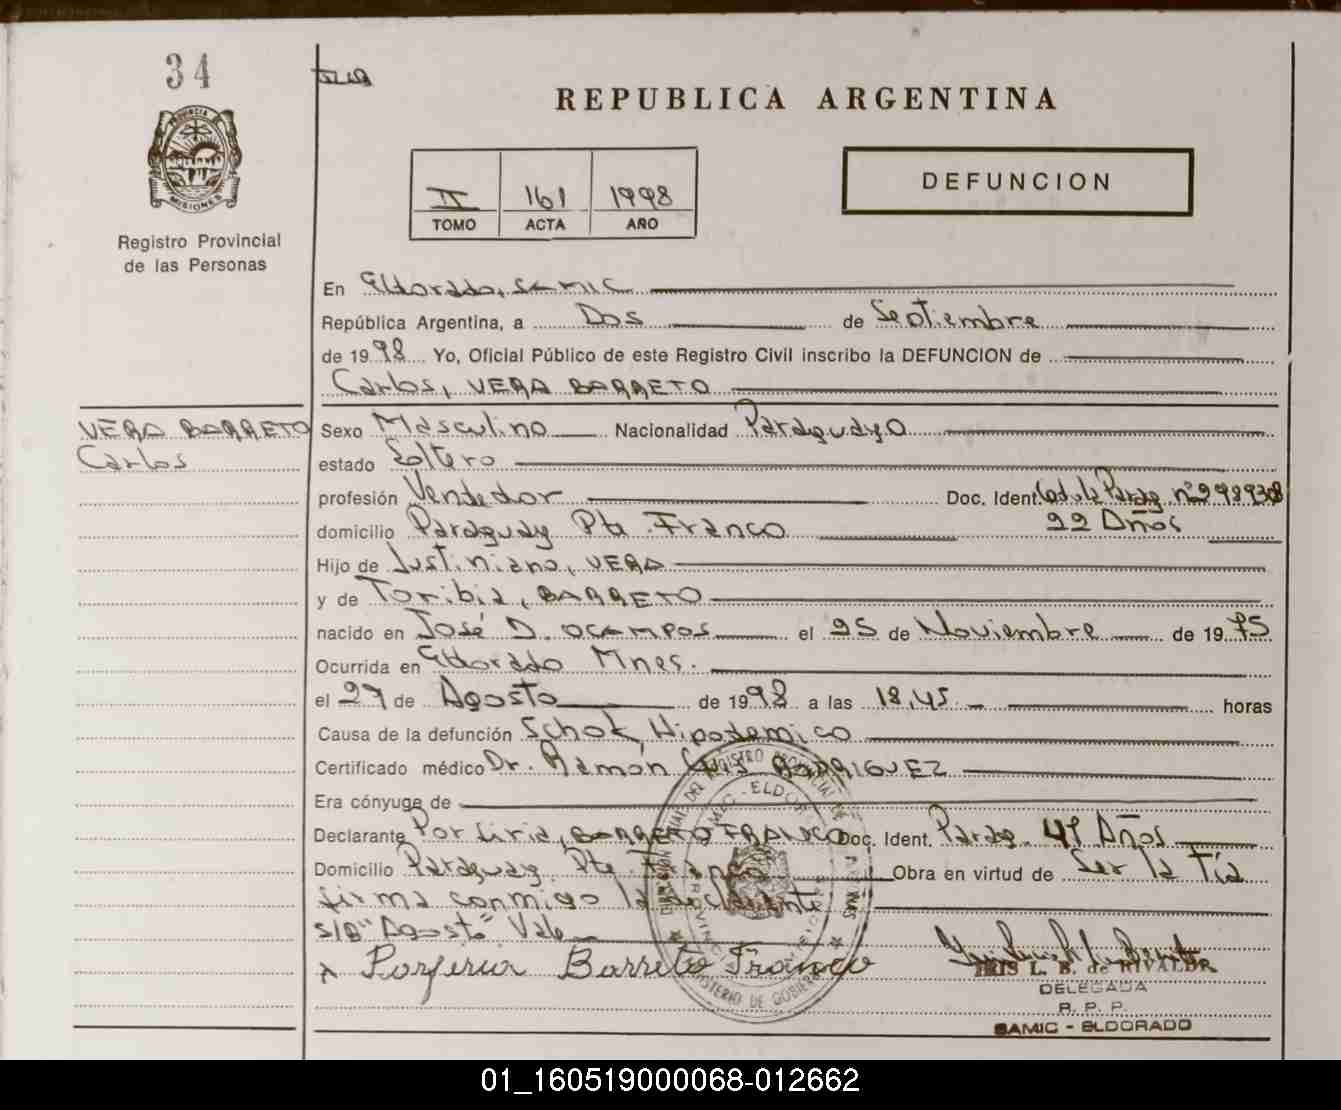 34
PROVINCIA DE
MISIONES
Registro Provincial
de las Personas
REPUBLICA ARGENTINA
II 161 1998
TOMO ACTA AÑO
DEFUNCION
En Eldorado, SAMIC
República Argentina, a Dos de Septiembre
de 1998 Yo, Oficial Público de este Registro Civil inscribo la DEFUNCION de
Carlos, VERA BARRETO
VERA BARRETO
Carlos
Sexo Masculino Nacionalidad Paraguayo
estado Soltero
profesión Vendedor Doc. Ident. Cedula Parag nº 2989308
domicilio Paraguay Pto. Franco 22 Años
Hijo de Justiniano, VERA
y de Toribia, BARRETO
nacido en José D. OCAMPOS el 25 de Noviembre de 1975
Ocurrida en Eldorado Mnes.
el 27 de Agosto de 1998 a las 18,45 horas
Causa de la defunción Schok Hipodemico
Certificado médico Dr. Ramón, Luis RODRIGUEZ
Era cónyuge de
Declarante Porfiria, BARRETO FRANCO Doc. Ident. Parag. 47 Años
Domicilio Paraguay Pto. Franco Obra en virtud de Ser la Tía
firma conmigo la declarante
S/B "Agosto" Vale
x Porferia Barreto Franco
IRIS L. B. de RIVALDI
DELEGADA
R. P. P.
SAMIC - ELDORADO
01_160519000068-012662